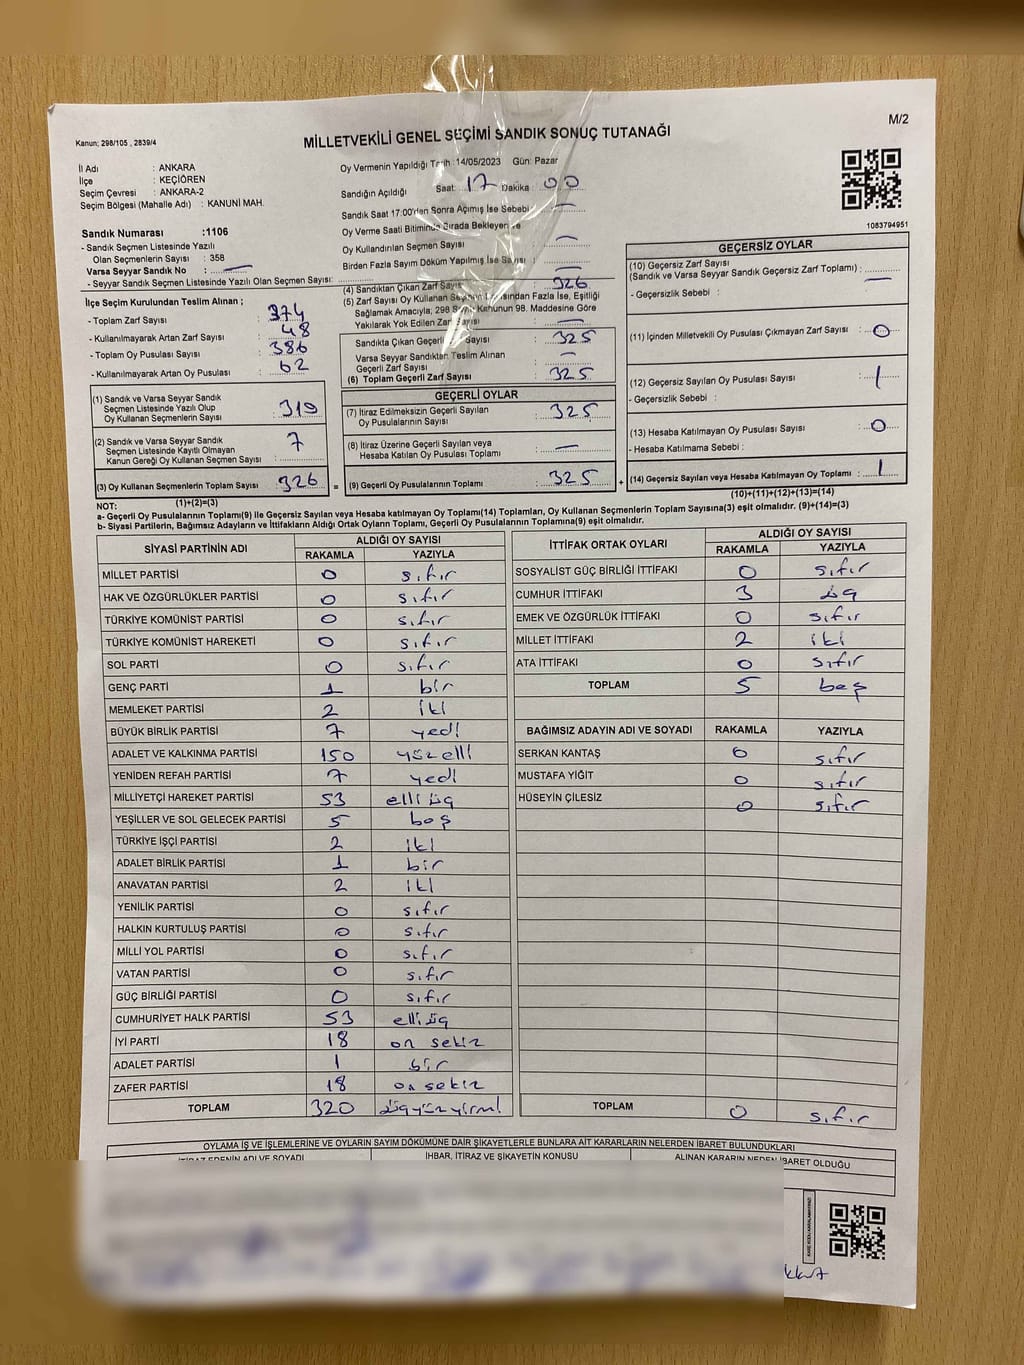 M/2
Kanun; 298/105 , 2839/4
MİLLETVEKİLİ GENEL SEÇİMİ SANDIK SONUÇ TUTANAĞI
İl Adı : ANKARA
İlçe : KEÇİÖREN
Seçim Çevresi : ANKARA-2
Seçim Bölgesi (Mahalle Adı) : KANUNİ MAH.
Sandık Numarası :1106
- Sandık Seçmen Listesinde Yazılı
Olan Seçmenlerin Sayısı : 358
Varsa Seyyar Sandık No : —
- Seyyar Sandık Seçmen Listesinde Yazılı Olan Seçmen Sayısı:
Oy Vermenin Yapıldığı Tarih :14/05/2023 Gün: Pazar
Sandığın Açıldığı Saat: 17 Dakika : 00
Sandık Saat 17:00'den Sonra Açımış İse Sebebi : —
Oy Verme Saati Bitiminde Sırada Bekleyen ve
Oy Kullandırılan Seçmen Sayısı : —
Birden Fazla Sayım Döküm Yapılmış İse Sayısı : —
1083794951
İlçe Seçim Kurulundan Teslim Alınan ;
- Toplam Zarf Sayısı : 374
- Kullanılmayarak Artan Zarf Sayısı : 48
- Toplam Oy Pusulası Sayısı : 386
- Kullanılmayarak Artan Oy Pusulası : 62
(1) Sandık ve Varsa Seyyar Sandık
Seçmen Listesinde Yazılı Olup
Oy Kullanan Seçmenlerin Sayısı : 319
(2) Sandık ve Varsa Seyyar Sandık
Seçmen Listesinde Kayıtlı Olmayan
Kanun Gereği Oy Kullanan Seçmen Sayısı : 7
(3) Oy Kullanan Seçmenlerin Toplam Sayısı : 326
(1)+(2)=(3)
(4) Sandıktan Çıkan Zarf Sayısı : 326
(5) Zarf Sayısı Oy Kullanan Seçmen Sayısından Fazla İse, Eşitliği
Sağlamak Amacıyla; 298 Sayılı Kanunun 98. Maddesine Göre
Yakılarak Yok Edilen Zarf Sayısı : —
Sandıkta Çıkan Geçerli Zarf Sayısı : 325
Varsa Seyyar Sandıktan Teslim Alınan
Geçerli Zarf Sayısı : —
(6) Toplam Geçerli Zarf Sayısı : 325
GEÇERLİ OYLAR
(7) İtiraz Edilmeksizin Geçerli Sayılan
Oy Pusulalarının Sayısı : 325
(8) İtiraz Üzerine Geçerli Sayılan veya
Hesaba Katılan Oy Pusulası Toplamı : —
= (9) Geçerli Oy Pusulalarının Toplamı : 325 +
GEÇERSİZ OYLAR
(10) Geçersiz Zarf Sayısı
(Sandık ve Varsa Seyyar Sandık Geçersiz Zarf Toplamı) : —
- Geçersizlik Sebebi :
(11) İçinden Milletvekili Oy Pusulası Çıkmayan Zarf Sayısı : 0
(12) Geçersiz Sayılan Oy Pusulası Sayısı : 1
- Geçersizlik Sebebi :
(13) Hesaba Katılmayan Oy Pusulası Sayısı : 0
- Hesaba Katılmama Sebebi :
(14) Geçersiz Sayılan veya Hesaba Katılmayan Oy Toplamı : 1
(10)+(11)+(12)+(13)=(14)
NOT:
a- Geçerli Oy Pusulalarının Toplamı(9) ile Geçersiz veya Hesaba Katılmayan Oy Toplamı(14) Toplamları, Oy Kullanan Seçmenlerin Toplam Sayısına(3) eşit olmalıdır. (9)+(14)=(3)
b- Siyasi Partilerin, Bağımsız Adayların ve İttifakların Aldığı Ortak Oyların Toplamı, Geçerli Oy Pusulalarının Toplamına(9) eşit olmalıdır.
SİYASİ PARTİNİN ADI ALDIĞI OY SAYISI
RAKAMLA YAZIYLA
MİLLET PARTİSİ 0 sıfır
HAK VE ÖZGÜRLÜKLER PARTİSİ 0 sıfır
TÜRKİYE KOMÜNİST PARTİSİ 0 sıfır
TÜRKİYE KOMÜNİST HAREKETİ 0 sıfır
SOL PARTİ 0 sıfır
GENÇ PARTİ 1 bir
MEMLEKET PARTİSİ 2 iki
BÜYÜK BİRLİK PARTİSİ 7 yedi
ADALET VE KALKINMA PARTİSİ 150 yüz elli
YENİDEN REFAH PARTİSİ 7 yedi
MİLLİYETÇİ HAREKET PARTİSİ 53 elli üç
YEŞİLLER VE SOL GELECEK PARTİSİ 5 beş
TÜRKİYE İŞÇİ PARTİSİ 2 iki
ADALET BİRLİK PARTİSİ 1 bir
ANAVATAN PARTİSİ 2 iki
YENİLİK PARTİSİ 0 sıfır
HALKIN KURTULUŞ PARTİSİ 0 sıfır
MİLLİ YOL PARTİSİ 0 sıfır
VATAN PARTİSİ 0 sıfır
GÜÇ BİRLİĞİ PARTİSİ 0 sıfır
CUMHURİYET HALK PARTİSİ 53 elli üç
İYİ PARTİ 18 on sekiz
ADALET PARTİSİ 1 bir
ZAFER PARTİSİ 18 on sekiz
TOPLAM 320 üçyüzyirmi
İTTİFAK ORTAK OYLARI ALDIĞI OY SAYISI
RAKAMLA YAZIYLA
SOSYALİST GÜÇ BİRLİĞİ İTTİFAKI 0 sıfır
CUMHUR İTTİFAKI 3 üç
EMEK VE ÖZGÜRLÜK İTTİFAKI 0 sıfır
MİLLET İTTİFAKI 2 iki
ATA İTTİFAKI 0 sıfır
TOPLAM 5 beş
BAĞIMSIZ ADAYIN ADI VE SOYADI RAKAMLA YAZIYLA
SERKAN KANTAŞ 0 sıfır
MUSTAFA YİĞİT 0 sıfır
HÜSEYİN ÇİLESİZ 0 sıfır
TOPLAM 0 sıfır
OYLAMA İŞ VE İŞLEMLERİNE VE OYLARIN SAYIM DÖKÜMÜNE DAİR ŞİKAYETLERLE BUNLARA AİT KARARLARIN NELERDEN İBARET BULUNDUKLARI
İTİRAZ EDENİN ADI VE SOYADI İHBAR, İTİRAZ VE ŞİKAYETİN KONUSU ALINAN KARARIN NEDEN İBARET OLDUĞU